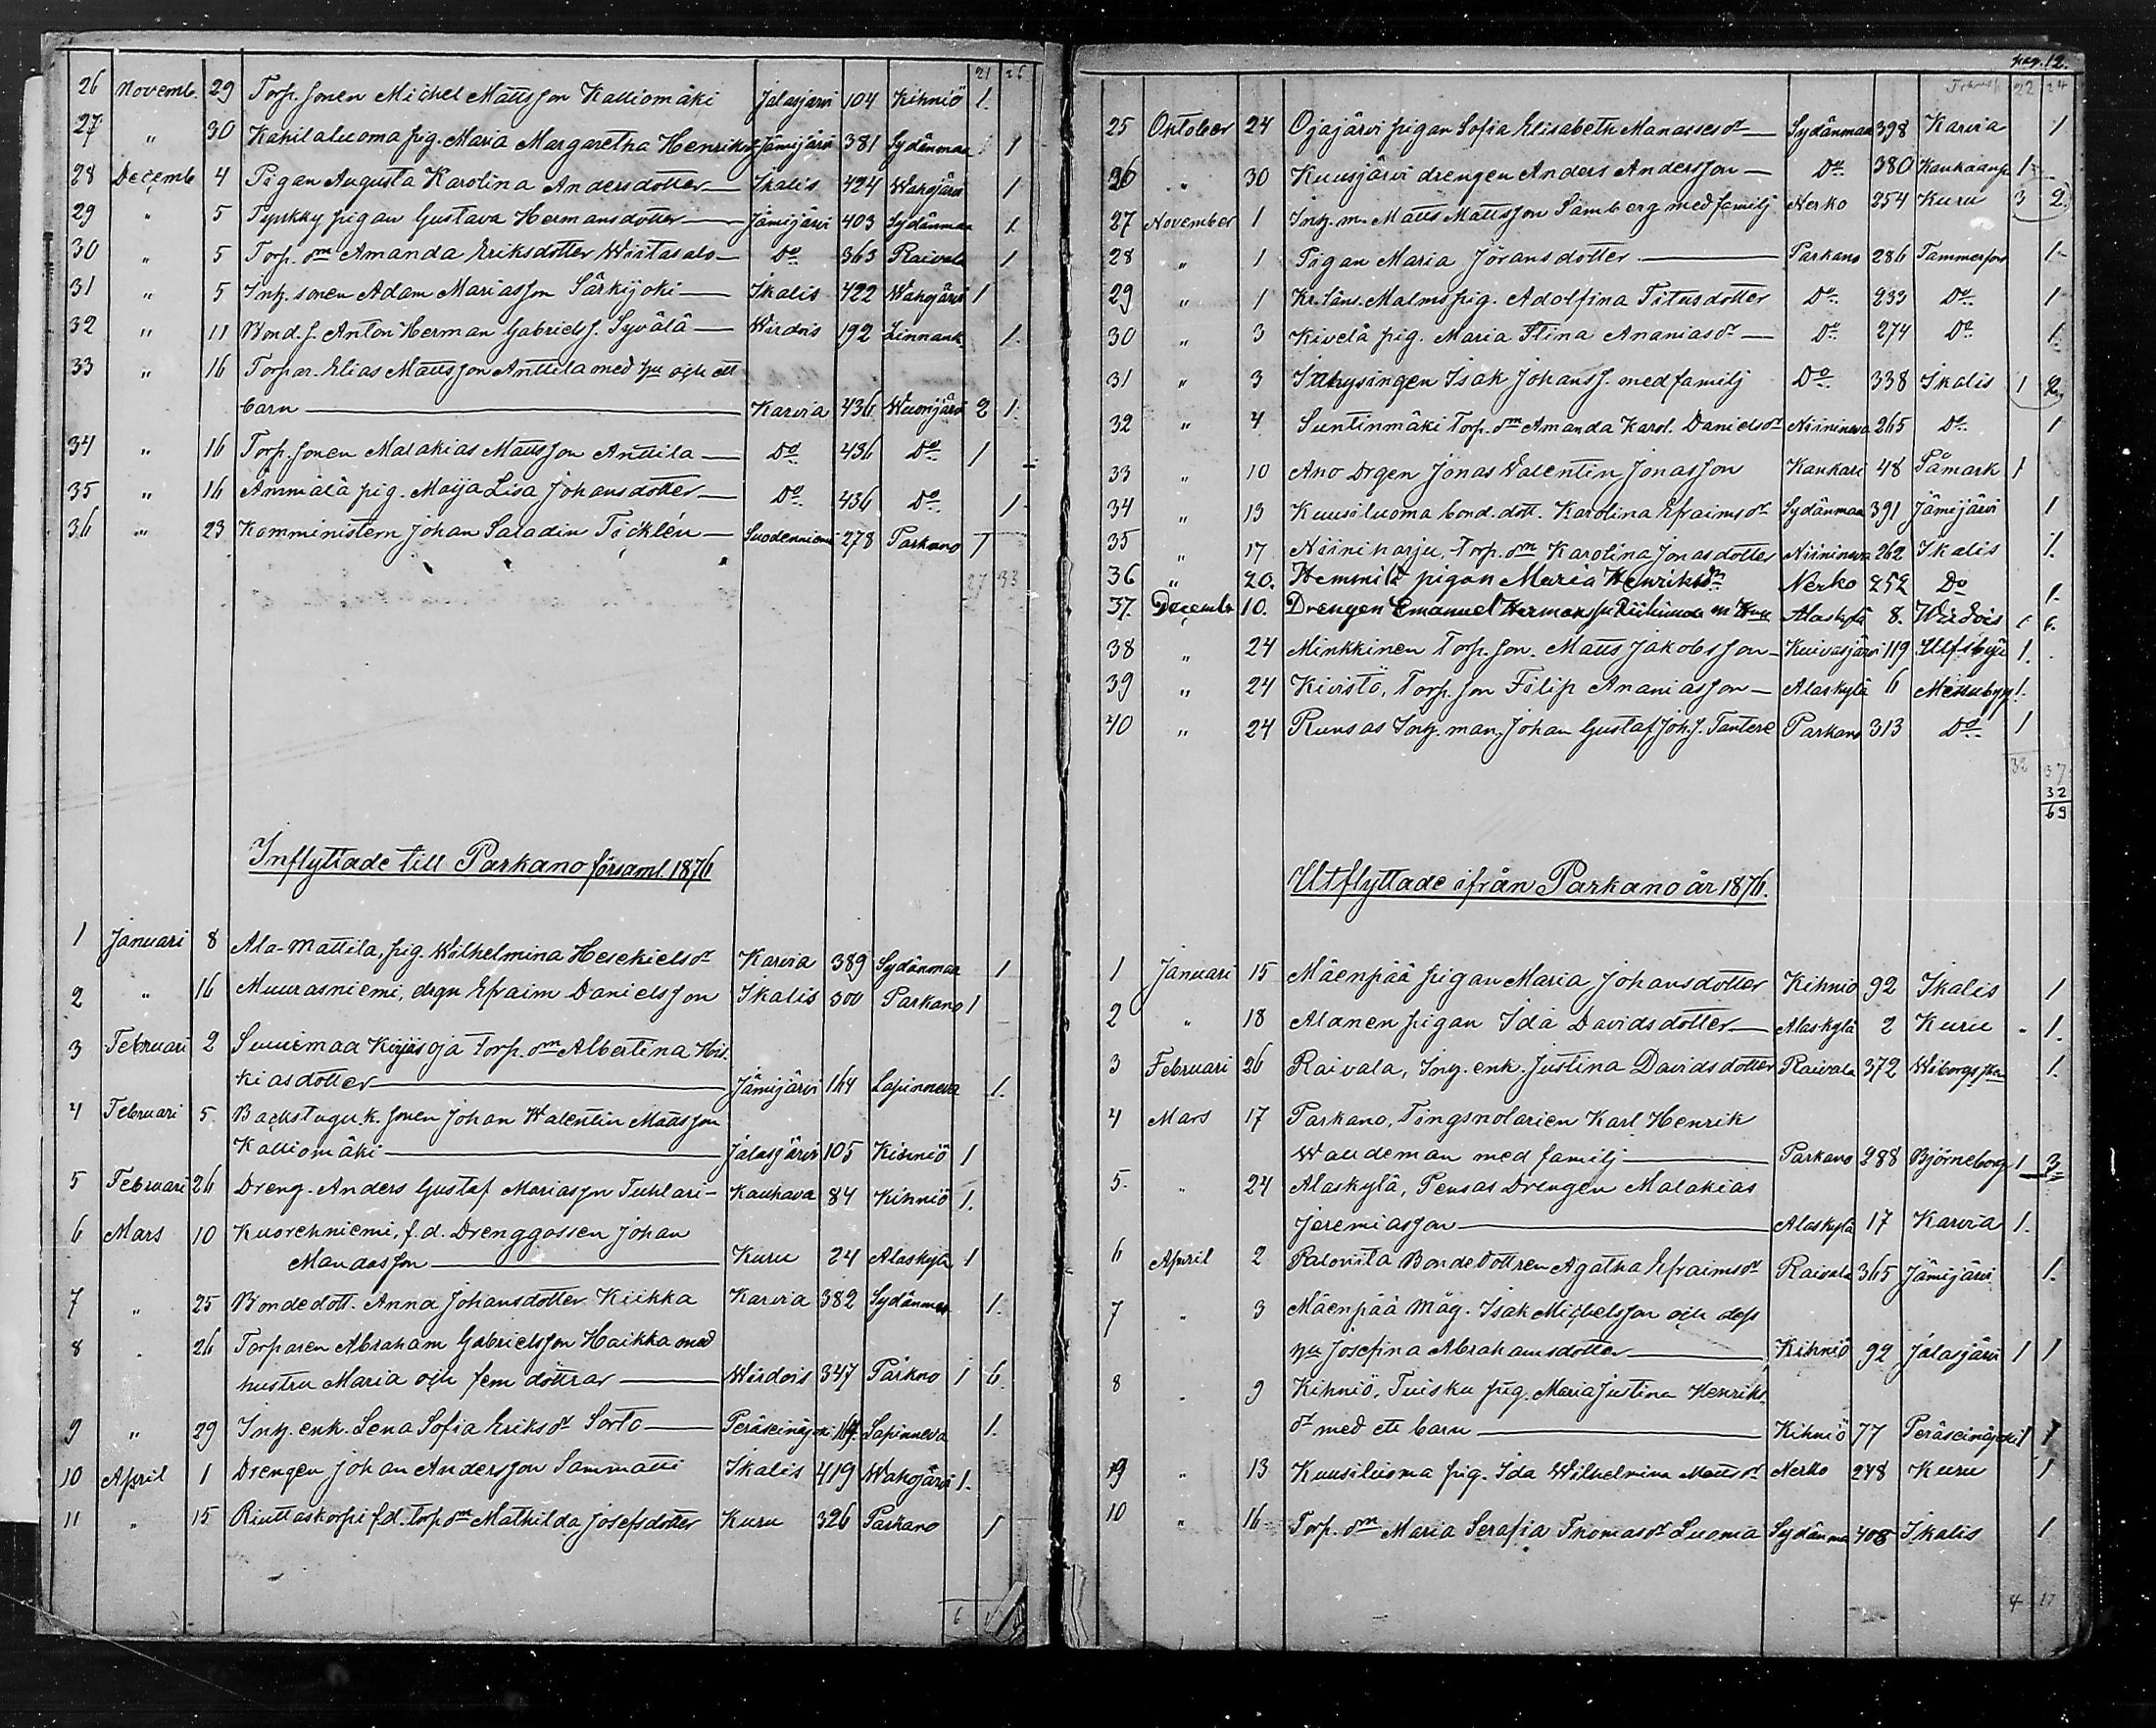 21 26
26 Novemb. 29 Torp. sonen Michel Mattsson Kalliomäki Jalasjärvi 104 Kihniö 1.
27 " 30 Kahilaluoma pig. Maria Margaretha Henriksdr Jämijärvi 381 Sydänmaa 1
28 Decemb 4 Pigan Augusta Karolina Andersdotter Ikalis 424 Wahojärvi 1
29 " 5 Tyrkky pigan Gustava Hermansdotter Jämijärvi 403 Sydänmaa 1.
30 " 5 Torp. dr Amanda Eriksdotter Wiitasalo Do 363 Raivala 1
31 " 5 Inh. sonen Adam Mariasson Särkijoki Ikalis 422 Wahojärvi 1
32 " 11 Bond. s. Anton Herman Gabriels s. Syvälä Wirdois 192 Linnank. 1.
33 " 16 Torpar. Elias Mattsson Anttila med hu och ett
barn Karvia 436 Wuorijärvi 2 1.
34 " 16 Torp. sonen Malakias Mattsson Anttila Do 436 Do 1
35 " 16 Ämmälä pig. Maija Lisa Johansdotter Do 436 Do 1.
36 " 23 Komministern Johan Saladin Töcklén Suodenniemi 278 Parkano 1
27 33
Inflyttade till Parkano församl. 1876
1 Januari 8 Ala-Mattila, pig. Wilhelmina Hesekielsdr Karvia 389 Sydänmaa 1
2 " 16 Muurasniemi, drgn Efraim Danielsson Ikalis 300 Parkano 1
3 Februari 2 Suurimaa Kirjasoja torp. dr Albertina His-
kiasdotter Jämijärvi 164 Lapinneva 1.
4 Februari 5 Backstugu.k. sonen Johan Walentin Mattsson
Kalliomäki Jalasjärvi 105 Kihniö 1
5 Februari 26 Dreng. Anders Gustaf Mariasson Tuhlari Kauhava 84 Kihniö 1.
6 Mars 10 Kuorehniemi, f.d. Drenggossen Johan
Mandasson Kuru 24 Alaskylä 1
7 " 25 Bondedott. Anna Johansdotter Kiikka Karvia 382 Sydänmaa 1.
8 . 26 Torparen Abraham Gabrielsson Haikka med
hustru Maria och fem döttrar Wirdois 347 Parkno 1 6.
9 " 29 Inh. enk. Lena Sofia Eriksdr Sorto Peräseinäjoki 169. Lapinneva 1.
10 April 1 Drengen Johan Andersson Sammatti Ikalis 419 Wahojärvi 1.
11 " 15 Riuttaskorpi f.d. torp dr Mathilda Josefsdotter Kuru 326 Parkano 1
6
pag. 12.
Transp. 22 24
25 Oktober 24 Ojajärvi pigan Sofia Elisabeth Manassesdr Sydänmaa 398 Karvia 1
26 " 30 Kuusjärvi drengen Anders Andersson Do 380 Kankaanp. 1
27 November 1 Inh. m. Matts Mattsson Samberg med familj Nerko 254 Kuru 3 2.
28 " 1 Pigan Maria Jöransdotter Parkano 286 Tammerfors 1
29 " 1 Kr. läns. Malms pig. Adolfina Titusdotter Do 233 Do 1
30 " 3 Kivelä pig. Maria Stina Ananiasdr Do 274 Do 1.
31 " 3 Inhysingen Isak Johans s. med familj Do 338 Ikalis 1 2.
32 " 4 Suntinmäki Torp. dr Amanda Karol. Danielsdr Niinineva 265 Do 1
33 " 10 Ano Drgen Jonas Valentin Jonasson Kankari 48 Påmark 1
34 " 13 Kuusiluoma bond. dott. Karolina Efraimsdr Sydänmaa 391 Jämijärvi 1
35 " 17 Niiniharju, Torp. dr Karolina Jonasdotter Niinineva 262 Ikalis 1.
36 " 20. Hemmilä pigan Maria Henriksdr Nerko 252 Do 1.
37. Decemb 10. Drengen Emanuel Hermansson m Hu Alaskylä 8. Wirdois 1 1.
38 " 24 Minkkinen Torp. son. Matts Jakobsson Kuivasjärvi 119 Ulfsby 1.
39 " 24 Kivistö, Torp. son Filip Ananiasson Alaskylä 6 Messuby 1.
40 " 24 Ruusas Inh. man, Johan Gustaf Joh. s. Tantere Parkano 313 Do 1
32 37
32
69
Utflyttade ifrån Parkano år 1876.
1 Januari 15 Mäenpää pigan Maria Johansdotter Kihniö 92 Ikalis 1
2 " 18 Alanen pigan Ida Davidsdotter Alaskylä 2 Kuru 1.
3 Februari 26 Raivala, Inh. enk. Justina Davidsdotter Raivala 372 Wiborgs 1.
4 Mars 17 Parkano, Tingsnotarien Karl Henrik
Waudeman med familj Parkano 288 Björneborg 1 3
5. " 24 Alaskylä, Pensas Drengen Malakias
Jeremiasson Alaskylä 17 Karvia 1.
6 April 2 Paloviita Bondedottren Agatha Efraimsdr Raivala 365 Jämijärvi 1.
7 " 3 Mäenpää Måg. Isak Michelsson och dess
hu Josefina Abrahamsdotter Kihniö 92 Jalasjärvi 1 1
8 " 9 Kihniö, Tuisku pig. Maria Justina Henriks
dr med ett barn Kihniö 77 Peräseinäjoki 1 1
9 " 13 Kuusiluoma pig. Ida Wilhelmina Mattsdr Nerko 248 Kuru 1
10 " 16 Torp. dr Maria Serafia Thomasdr Luoma Sydänmaa 408 Ikalis 1
4 11